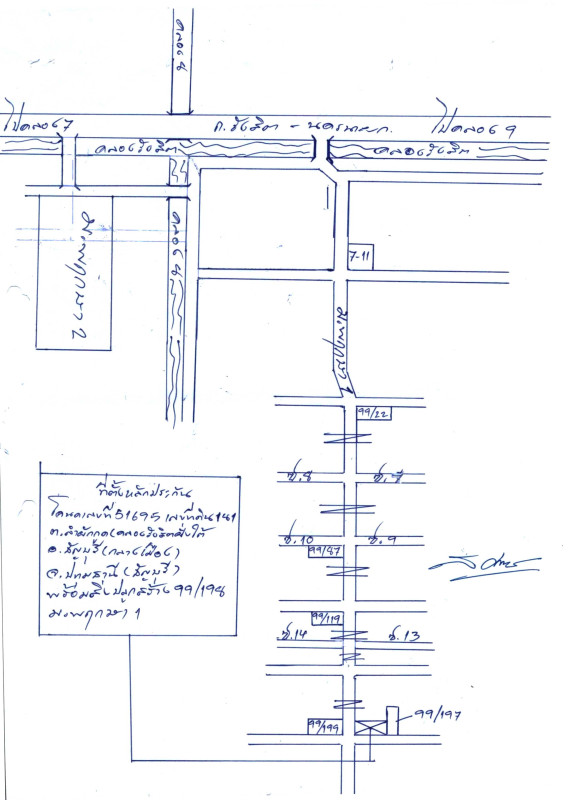 คลอง 8
ไปคลอง 7
ถ. รังสิต - นครนายก.
ไปคลอง 9
คลองรังสิต
คลองรังสิต
คลอง 8
7-11
99/22
ซ.8
ซ.7
ที่ตั้งหลักประกัน
โฉนดเลขที่ 51695 เลขที่ดิน 141
ต.ลำผักกูด (คลองรังสิตฝั่งใต้)
อ.ธัญบุรี (กลางเมือง)
จ.ปทุมธานี (ธัญบุรี)
พร้อมสิ่งปลูกสร้าง 99/198
ม.พฤกษา 1
ซ.10
ซ.9
99/87
99/119
ซ.14
ซ.13
99/197
99/199